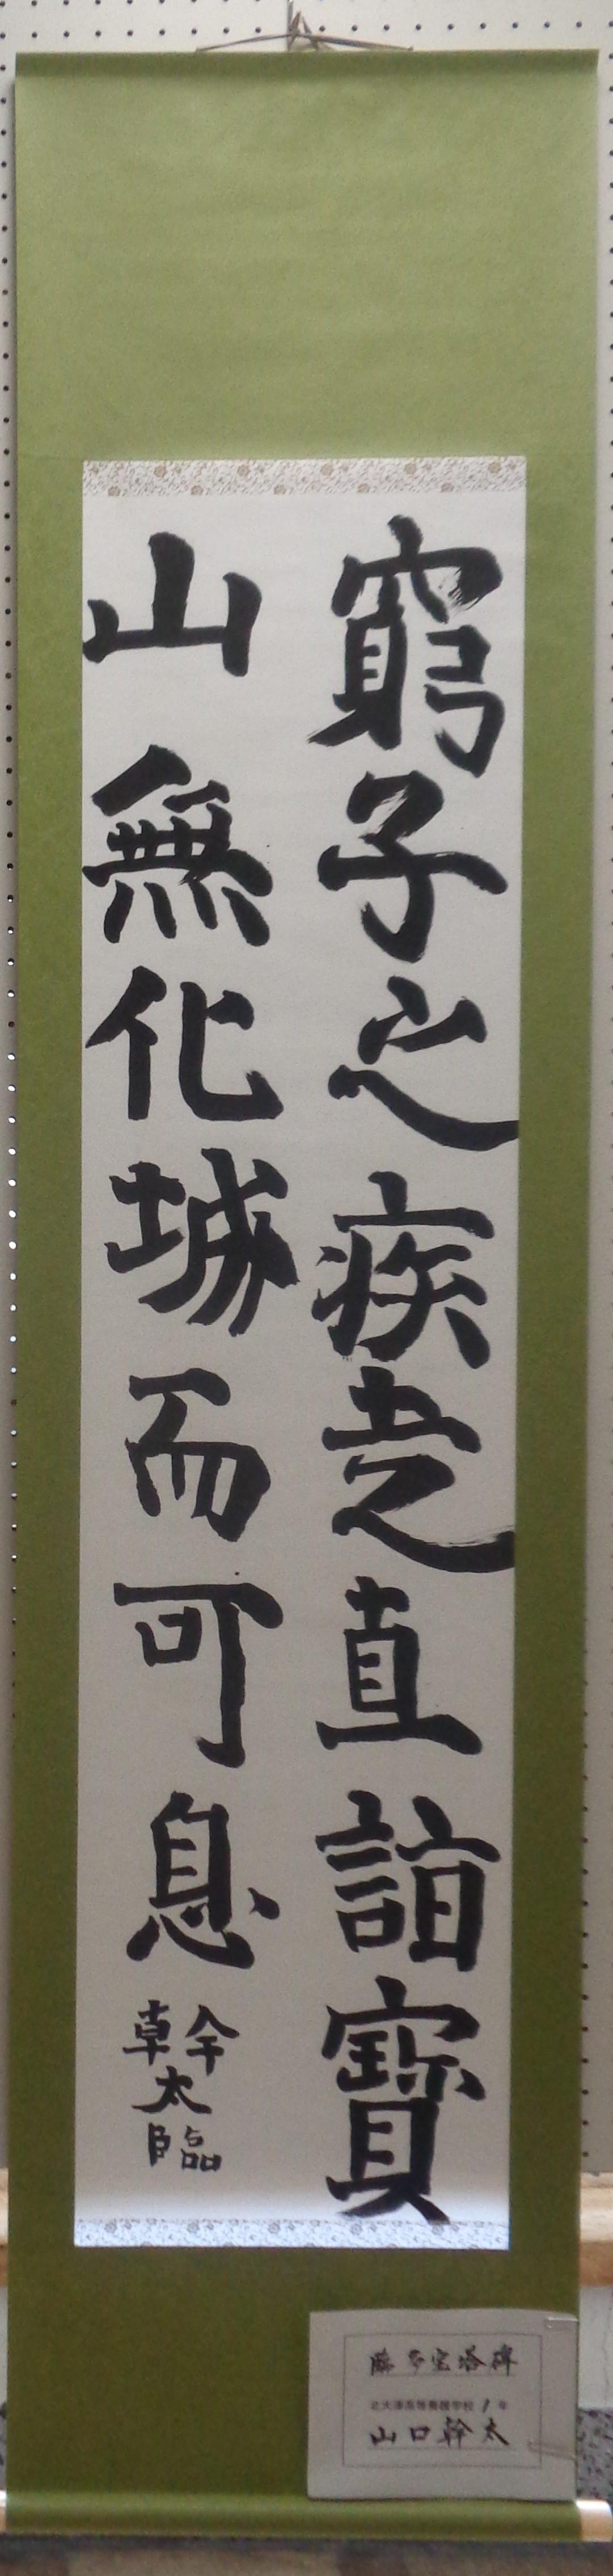 窮子之疾走直詣寶
山無化城而可息
幹太臨
臨 多宝塔碑
北大津高等養護学校 1年
山口幹太